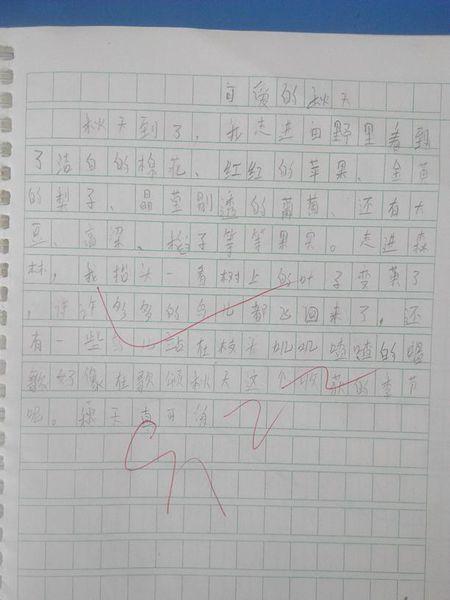 可爱的秋天
秋天到了，我走进田野里看到
了洁白的棉花、红红的苹果、金黄
的梨子、晶莹剔透的葡萄、还有大
豆、高粱、松子等等果实。走进森
林，我抬头一看树上的叶子变黄了
，许许多多的鸟儿都飞回来了，还
有一些鸟儿站在枝头叽叽喳喳的唱
歌好像在歌颂秋天这个收获的季节
呢。秋天真可